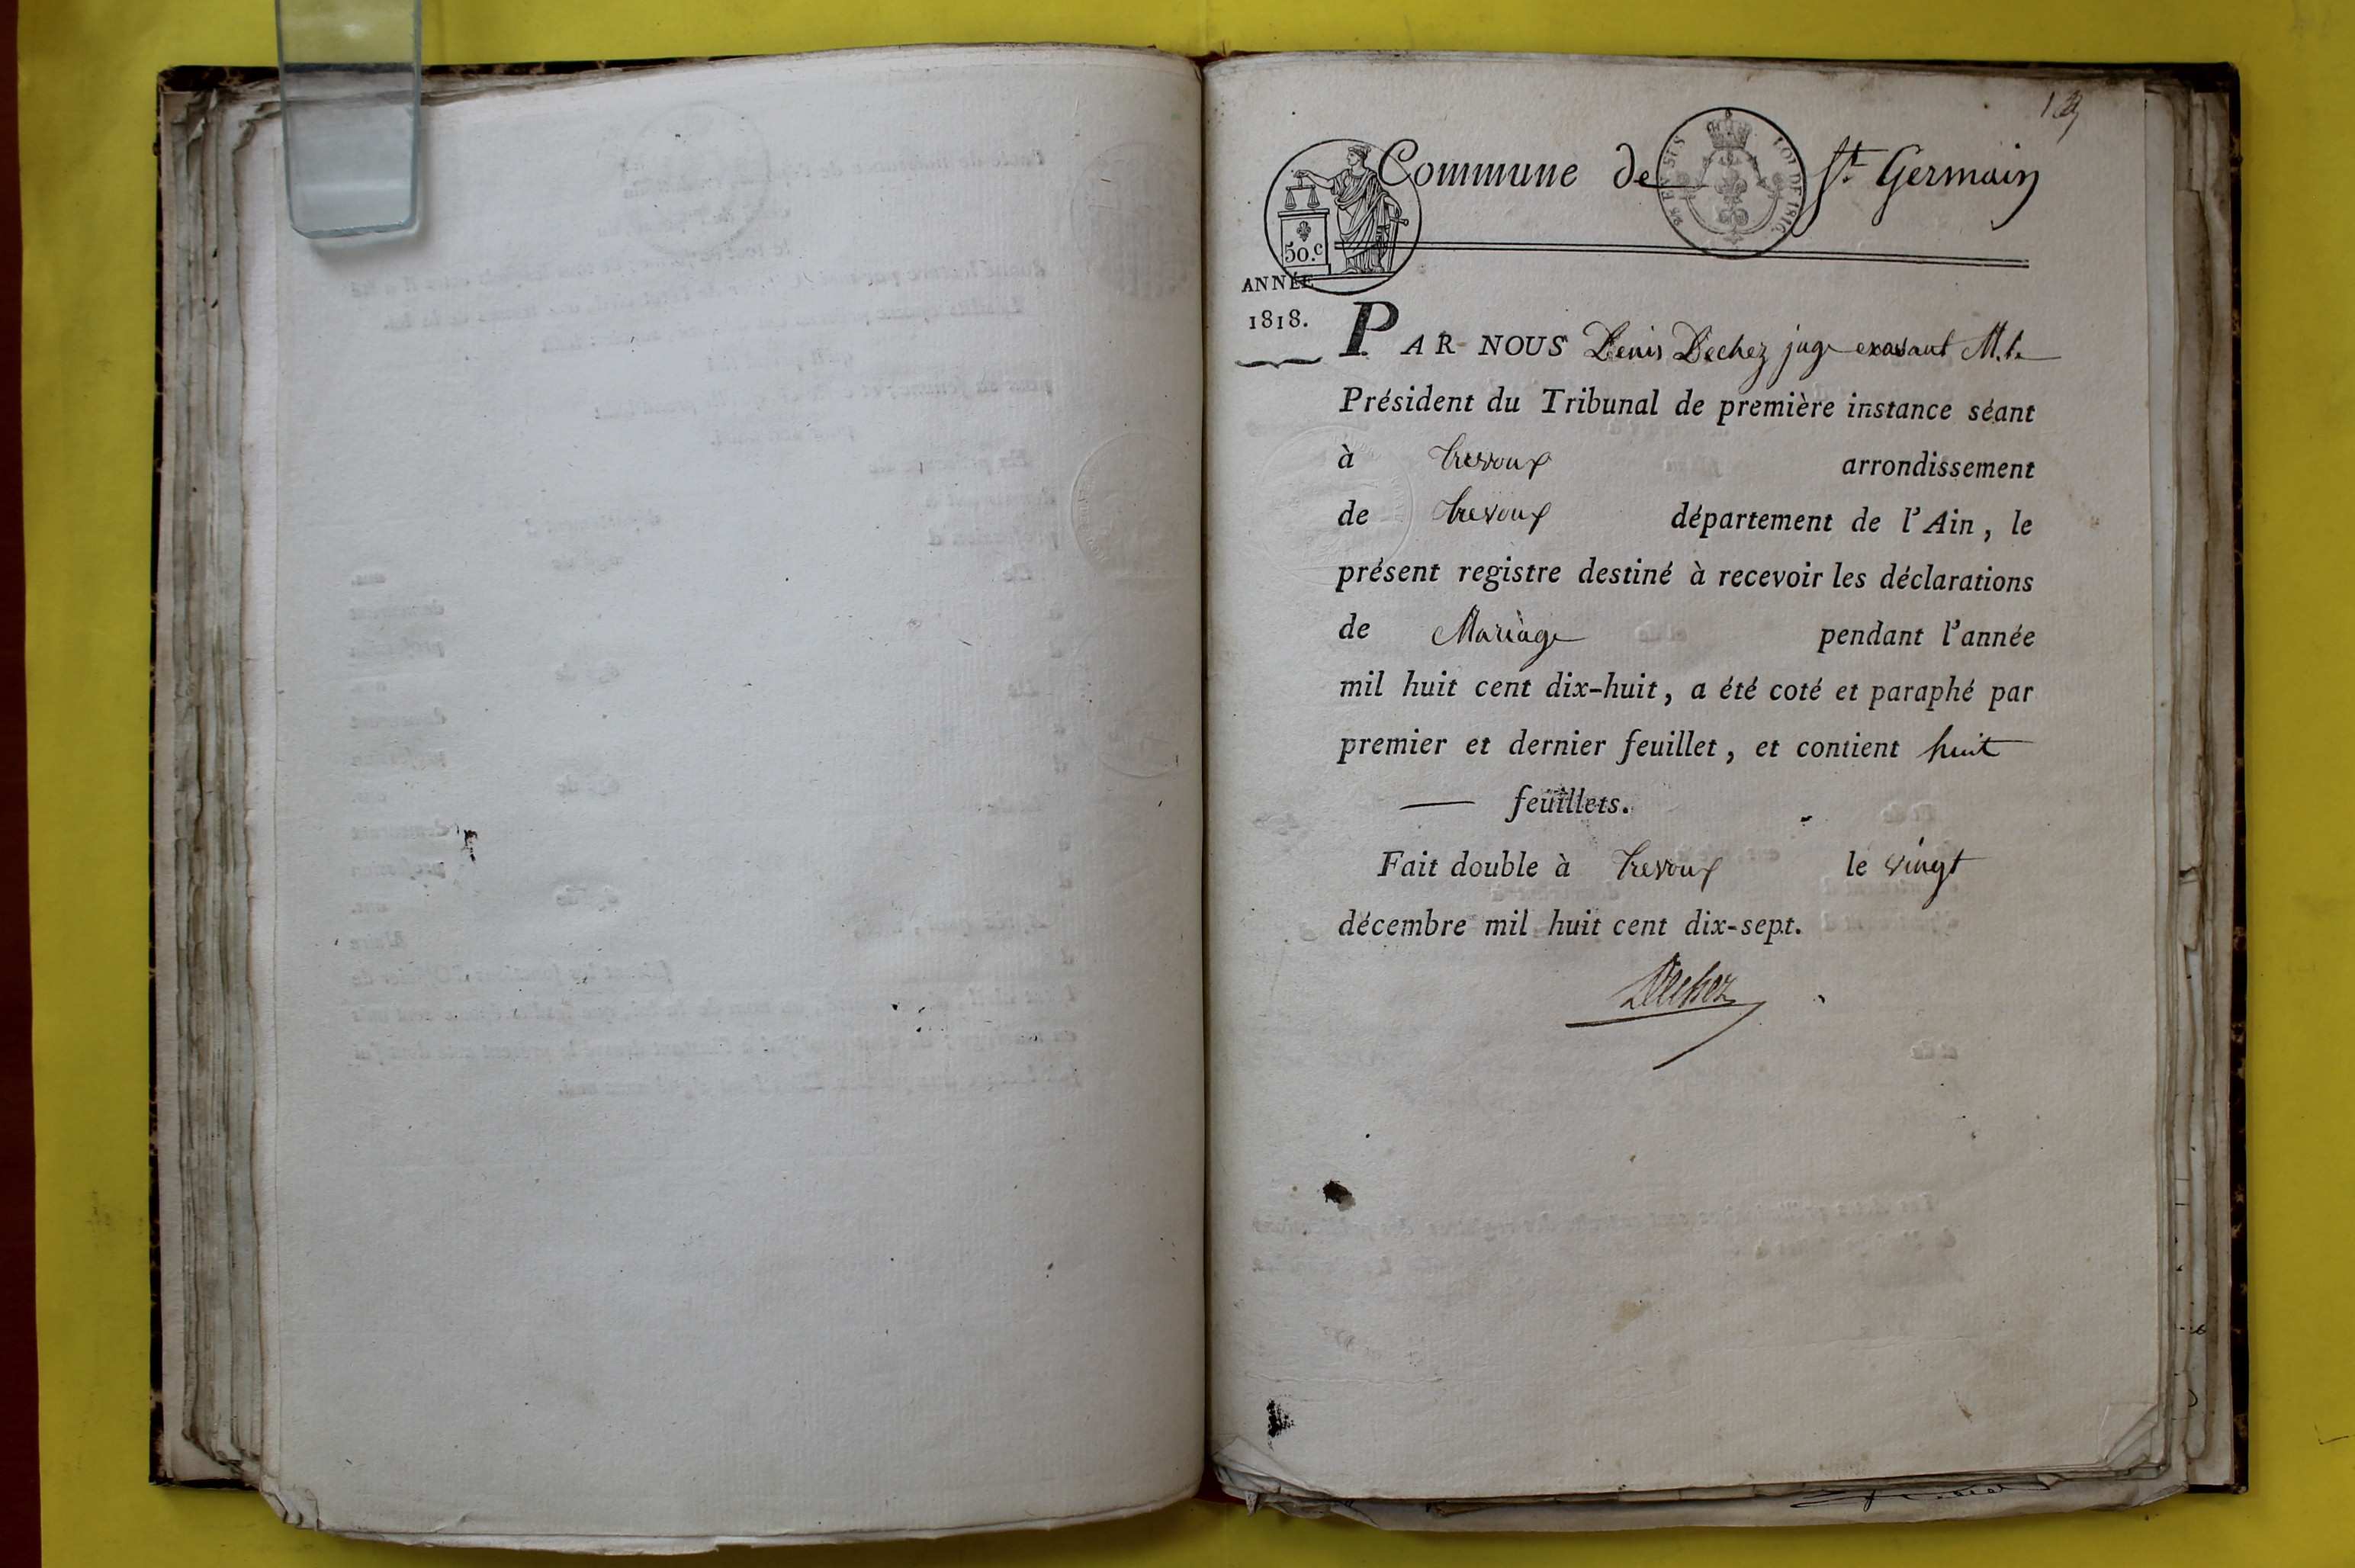 Commune de St. Germain
50.c
ANNÉE
1818.
PAR NOUS Denis Dechez juge M. le
Président du Tribunal de première instance séant
à Trevoux arrondissement
de Trevoux département de l'Ain, le
présent registre destiné à recevoir les déclarations
de Mariage pendant l'année
mil huit cent dix-huit, a été coté et paraphé par
premier et dernier feuillet, et contient huit
— feuillets.
Fait double à Trevoux le vingt
décembre mil huit cent dix-sept.
Dechez